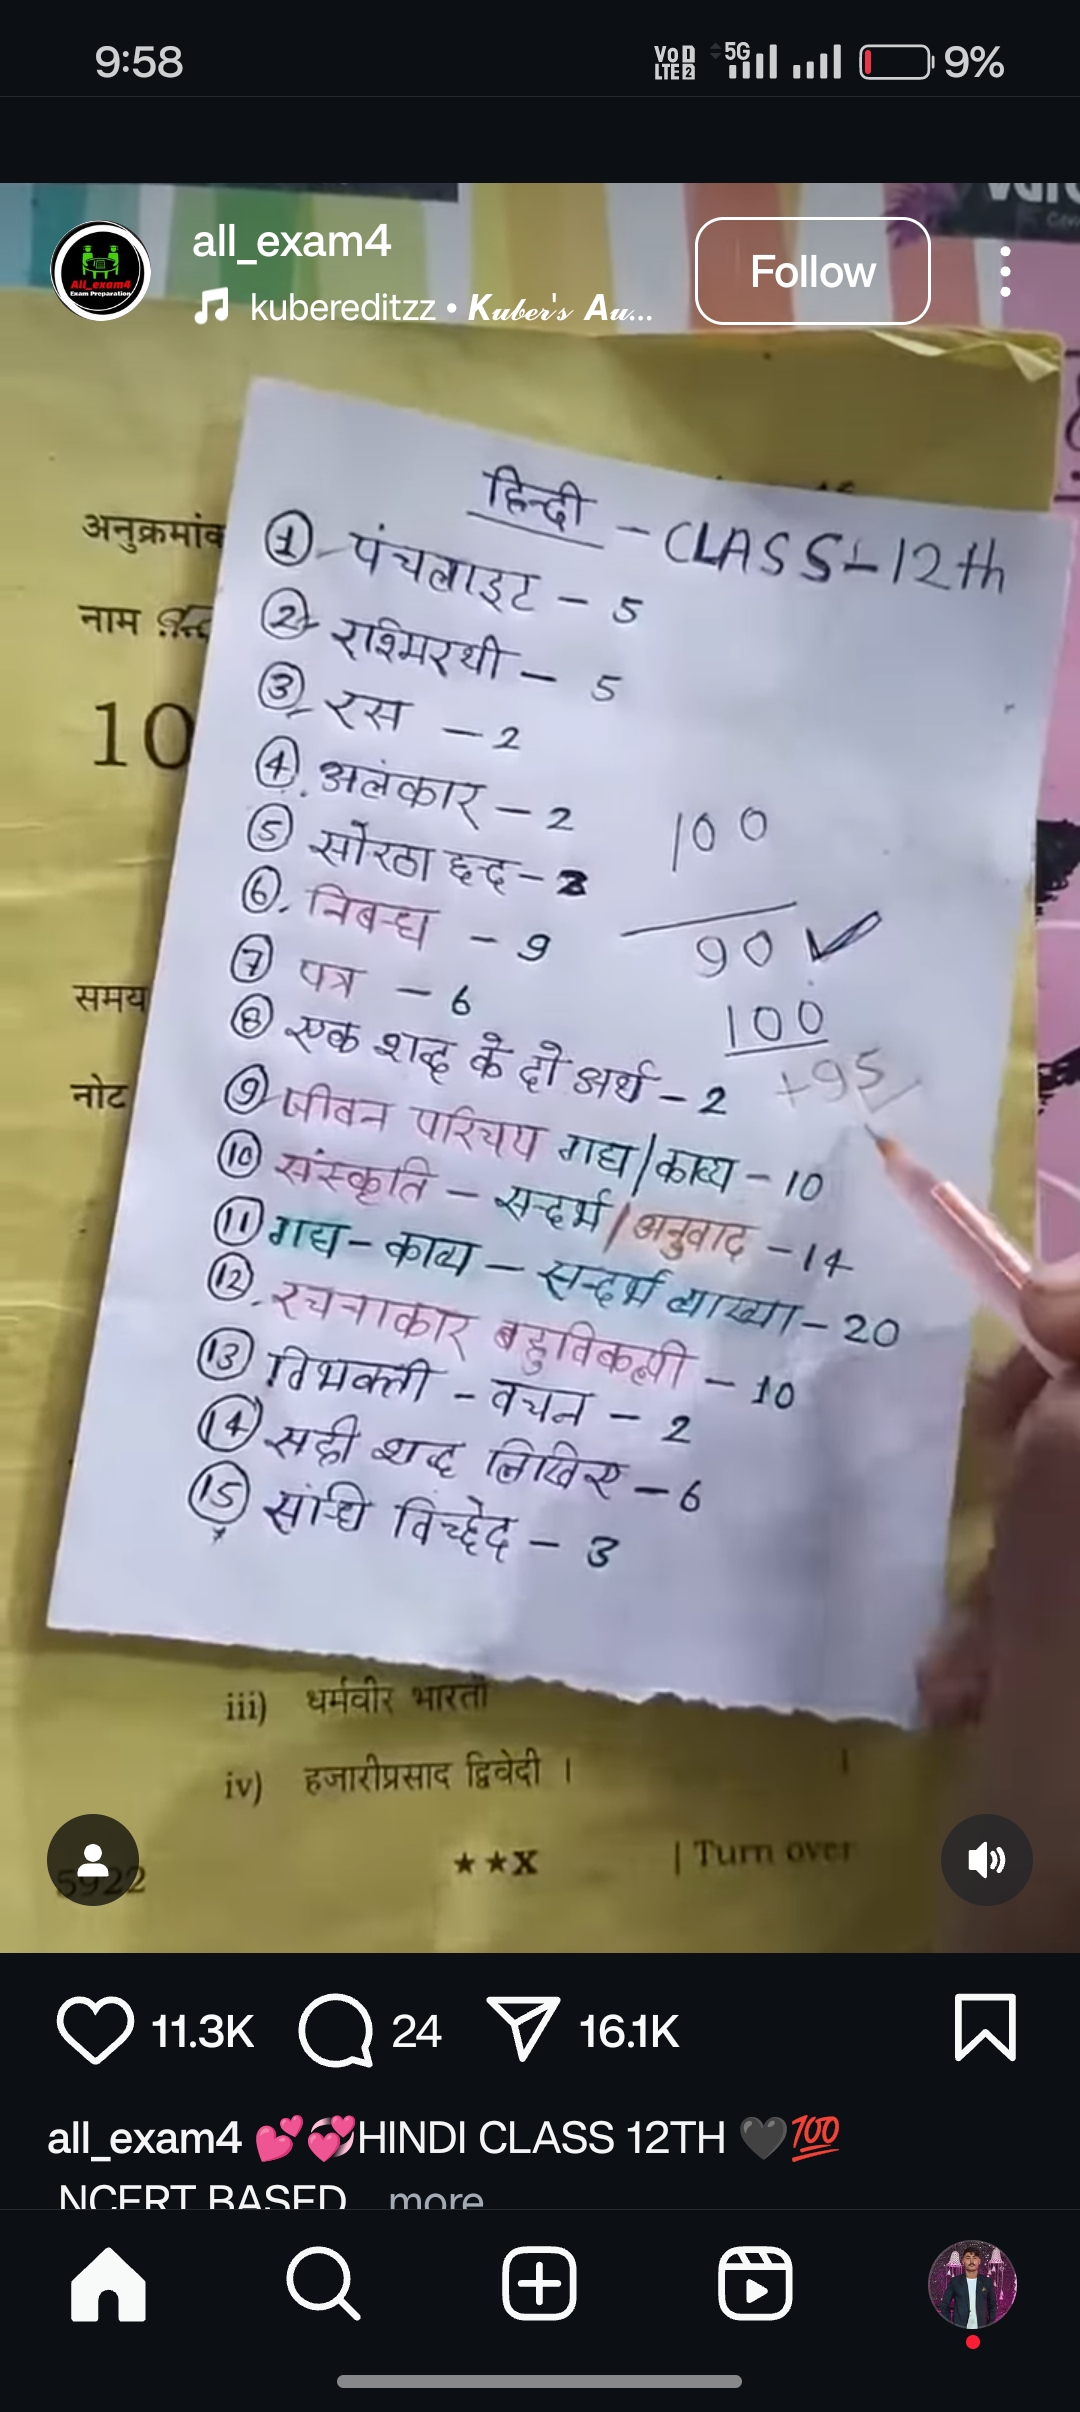 9:58
Vo LTE 2 5G 9%
all_exam4
Follow
kubereditzz • Kuber's Au...
हिन्दी - CLASS - 12th
अनुक्रमांक
नाम
10
समय
नोट
① पंचलाइट - 5
② रश्मिरथी - 5
③ रस - 2
④ अलंकार - 2
⑤ सोरठा छंद - 2
⑥ निबन्ध - 9
⑦ पत्र - 6
⑧ एक शब्द के दो अर्थ - 2
⑨ जीवन परिचय गद्य/काव्य - 10
⑩ संस्कृति - सन्दर्भ/अनुवाद - 14
⑪ गद्य - काव्य - सन्दर्भ व्याख्या - 20
⑫ रचनाकार बहुविकल्पी - 10
⑬ विभक्ती - वचन - 2
⑭ सही शब्द लिखिए - 6
⑮ संधि विच्छेद - 3
100
90 ✓
100
+95
iii) धर्मवीर भारती
iv) हजारीप्रसाद द्विवेदी ।
5922
★★X
| Turn over
11.3K 24 16.1K
all_exam4 💕💞HINDI CLASS 12TH 🖤💯
NCERT BASED... more